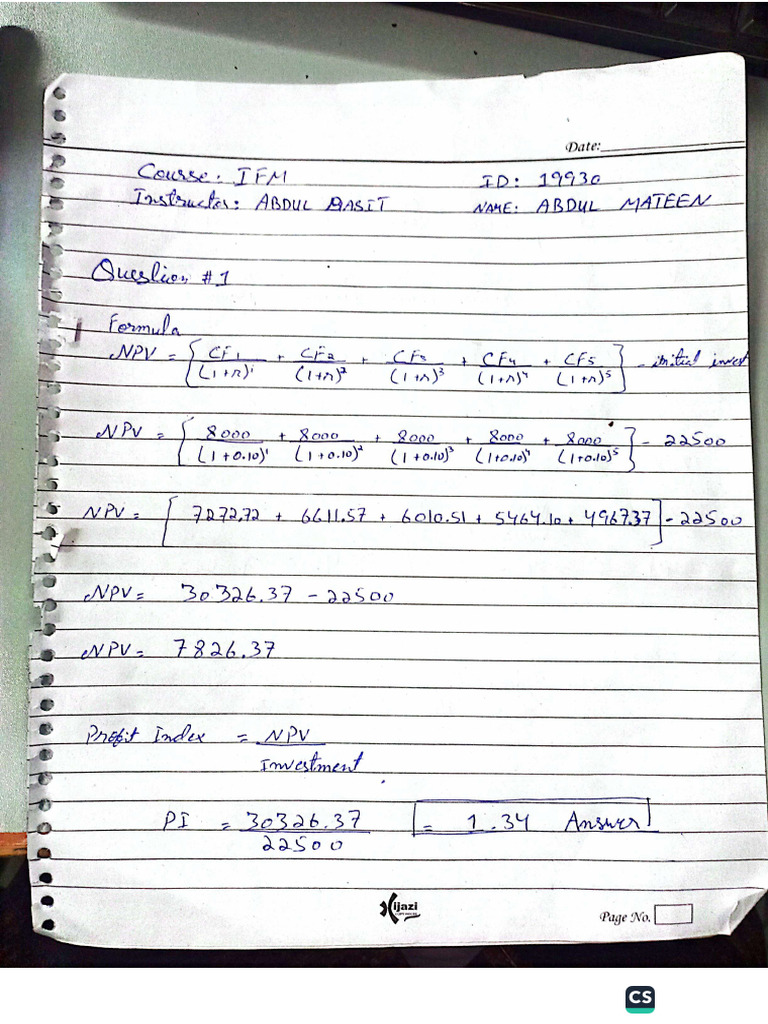 Date:
Course: IFM ID: 19930
Instructor: ABDUL BASIT NAME: ABDUL MATEEN
Question #1
Formula
NPV = [CF1/(1+r)¹ + CF2/(1+r)² + CF3/(1+r)³ + CF4/(1+r)⁴ + CF5/(1+r)⁵] - initial invest
NPV = [8000/(1+0.10)¹ + 8000/(1+0.10)² + 8000/(1+0.10)³ + 8000/(1+0.10)⁴ + 8000/(1+0.10)⁵] - 22500
NPV = [7272.72 + 6611.57 + 6010.51 + 5464.10 + 4967.37] - 22500
NPV = 30326.37 - 22500
NPV = 7826.37
Profit Index = NPV/Investment
PI = 30326.37/22500 = 1.34 Answer
ijazi
Page No.
CS